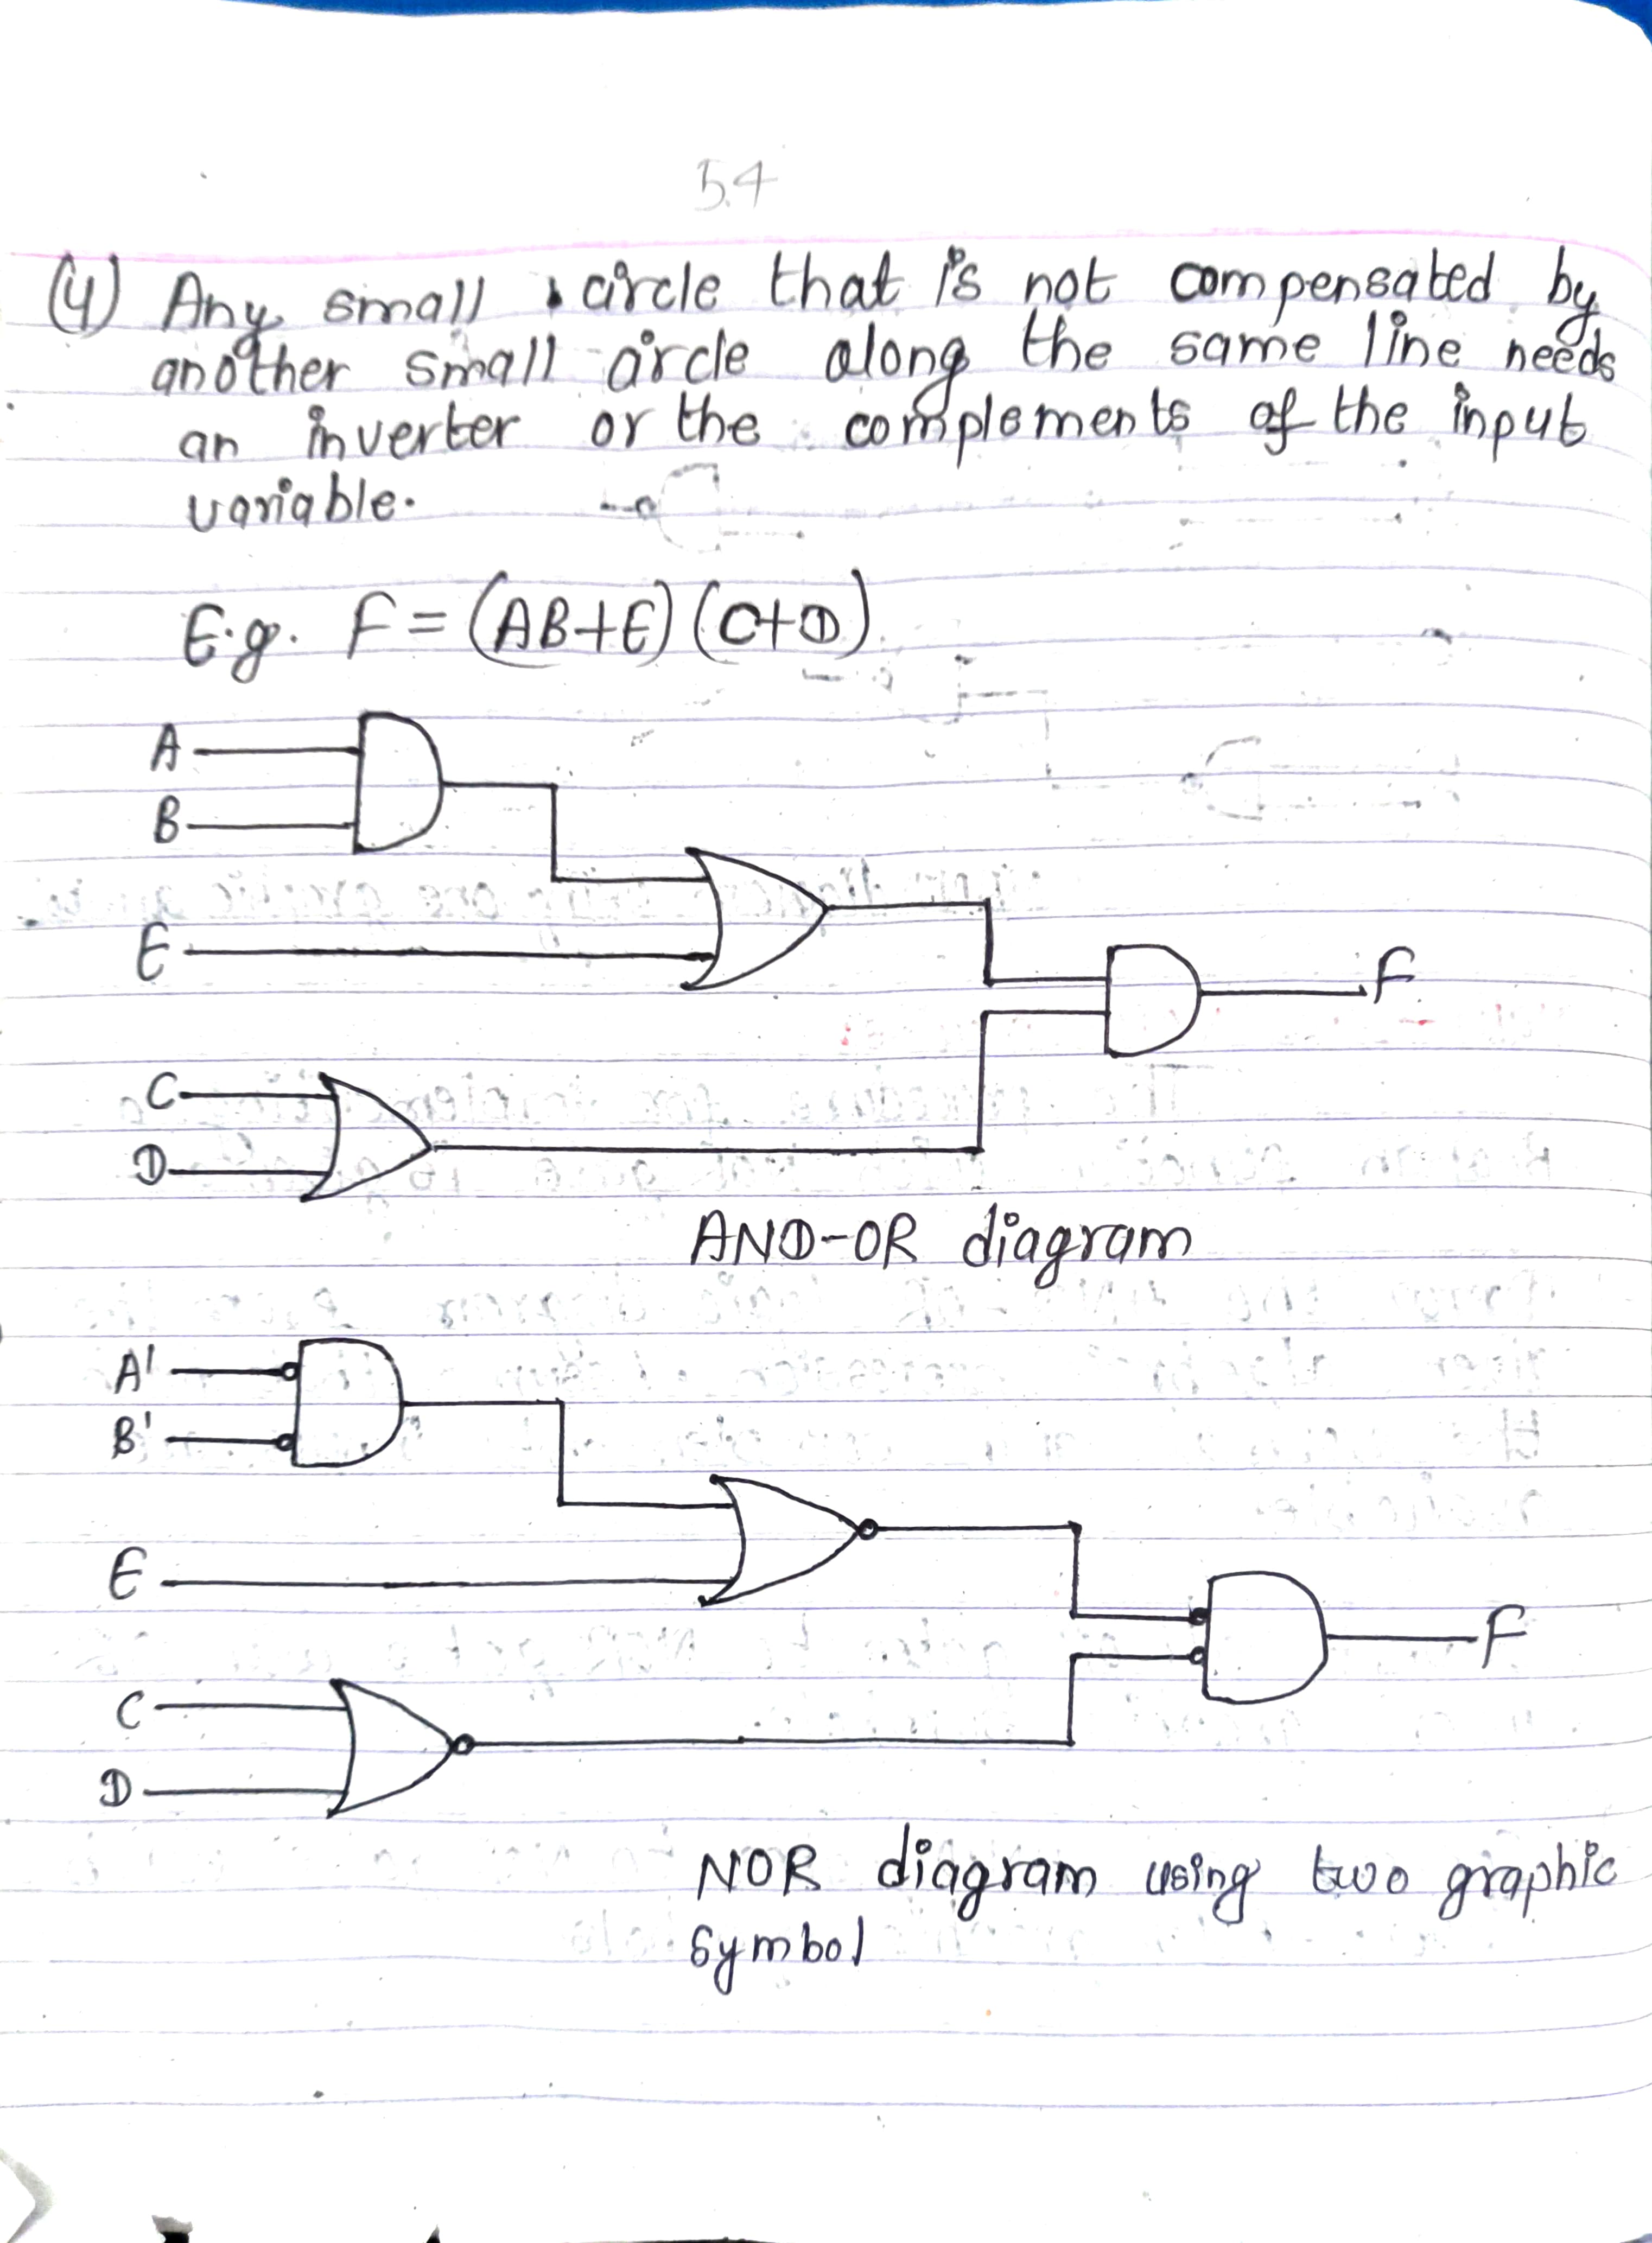 54
(4) Any small circle that is not compensated by
another small circle along the same line needs
an inverter or the complements of the input
variable.
E.g. F = (AB+E) (C+D)
A
B
E
F
C
D
AND-OR diagram
A'
B'
E
F
C
D
NOR diagram using two graphic
symbol